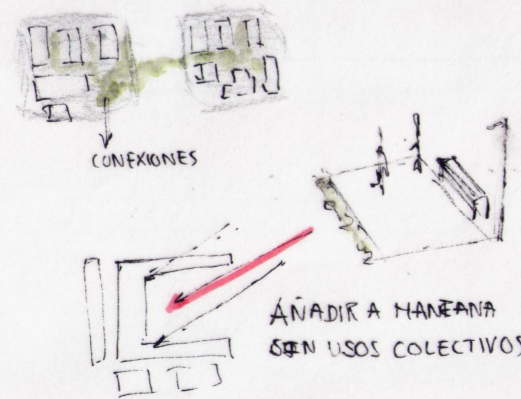 CONEXIONES
AÑADIR A MANZANA
SIN USOS COLECTIVOS